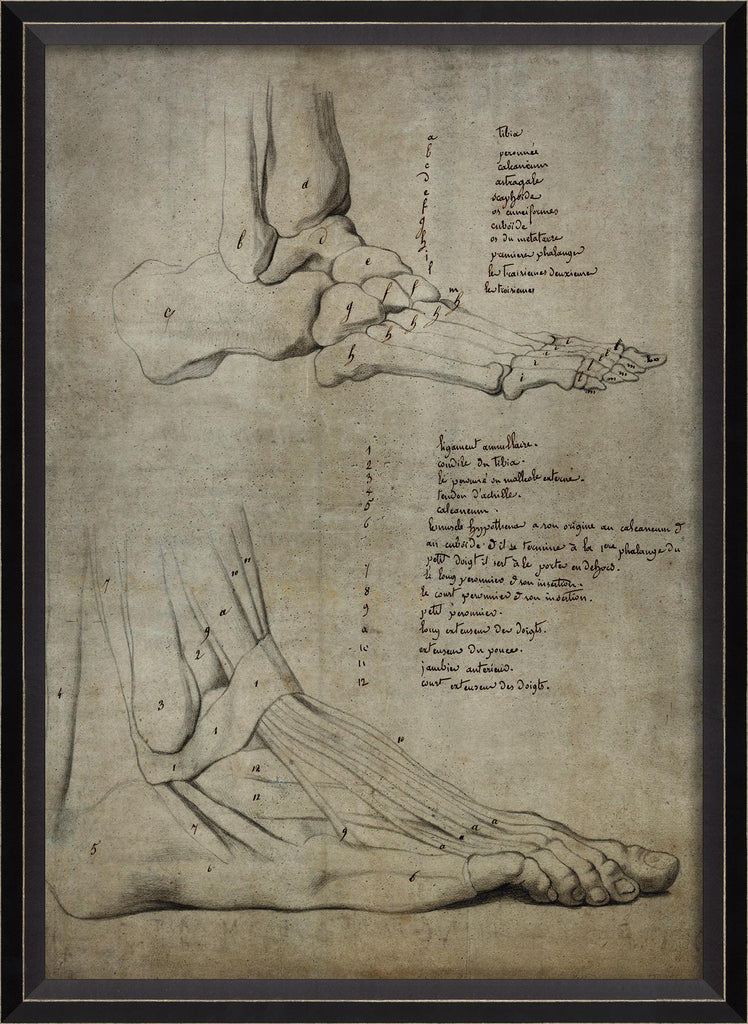 a tibia
b peronnée
c calcaneum
d astragale
e scaphoïde
f os cuneiformes
g cuboïde
h os du metatarse
i premieres phalanges
l les troisiemes deuxieme
m les troisiemes
b
d
d
c
e
f
f
g
h
h
h
h
h
h
i
i
i
i
i
m
m
m
1 ligament annullaire.
2 condile du tibia.
3 le peronné ou malleole externe.
4 tendon d'achille.
5 calcaneum.
6 le muscle hypothenar a son origine au calcaneum et
au cuboïde et il se termine à la 1ere phalange du
petit doigt il sert à le porter en dehors.
7 le long peronnier et son insertion.
8 le court peronnier et son insertion.
9 petit peronnier.
a long extenseur des doigts.
10 extenseur du pouce.
11 jambier anterieur.
12 court extenseur des doigts.
7
10
11
a
9
2
4
3
1
1
1
10
12
12
7
9
a
a
a
5
6
6